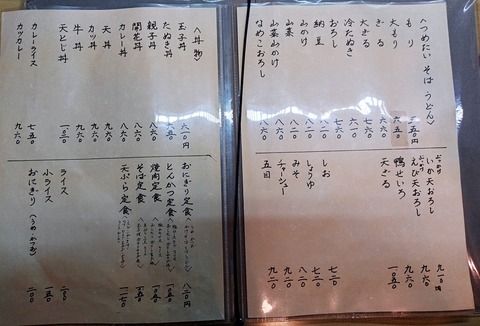 〈つめたい そば うどん〉
もり 五五〇円
大もり 六五〇
ざる
大ざる
冷たぬき
おろし 七六〇
納豆
山かけ 八二〇
山菜 八二〇
山菜山かけ 八六〇
なめこおろし 八六〇
いか天おろし 九一〇円
えび天おろし 九六〇
鴨せいろ 九六〇
天ざる 一〇五〇
しお 七三〇
しょうゆ 七三〇
みそ 八二〇
チャーシュー 九二〇
五目 九二〇
〈丼物〉
玉子丼 六一〇円
たぬき丼 六五〇
親子丼 八六〇
開花丼 八六〇
カレー丼 八六〇
天丼 九六〇
カツ丼 九六〇
牛丼 九六〇
天とじ丼 一〇三〇
カレーライス 七五〇
カツカレー 九六〇
おにぎり定食 八二〇円
とんかつ定食 一〇五〇
焼肉定食 一〇五〇
そば定食
天ぷら定食 一一七〇
ライス
小ライス 一五〇
おにぎり(うめ・かつお) 二〇〇